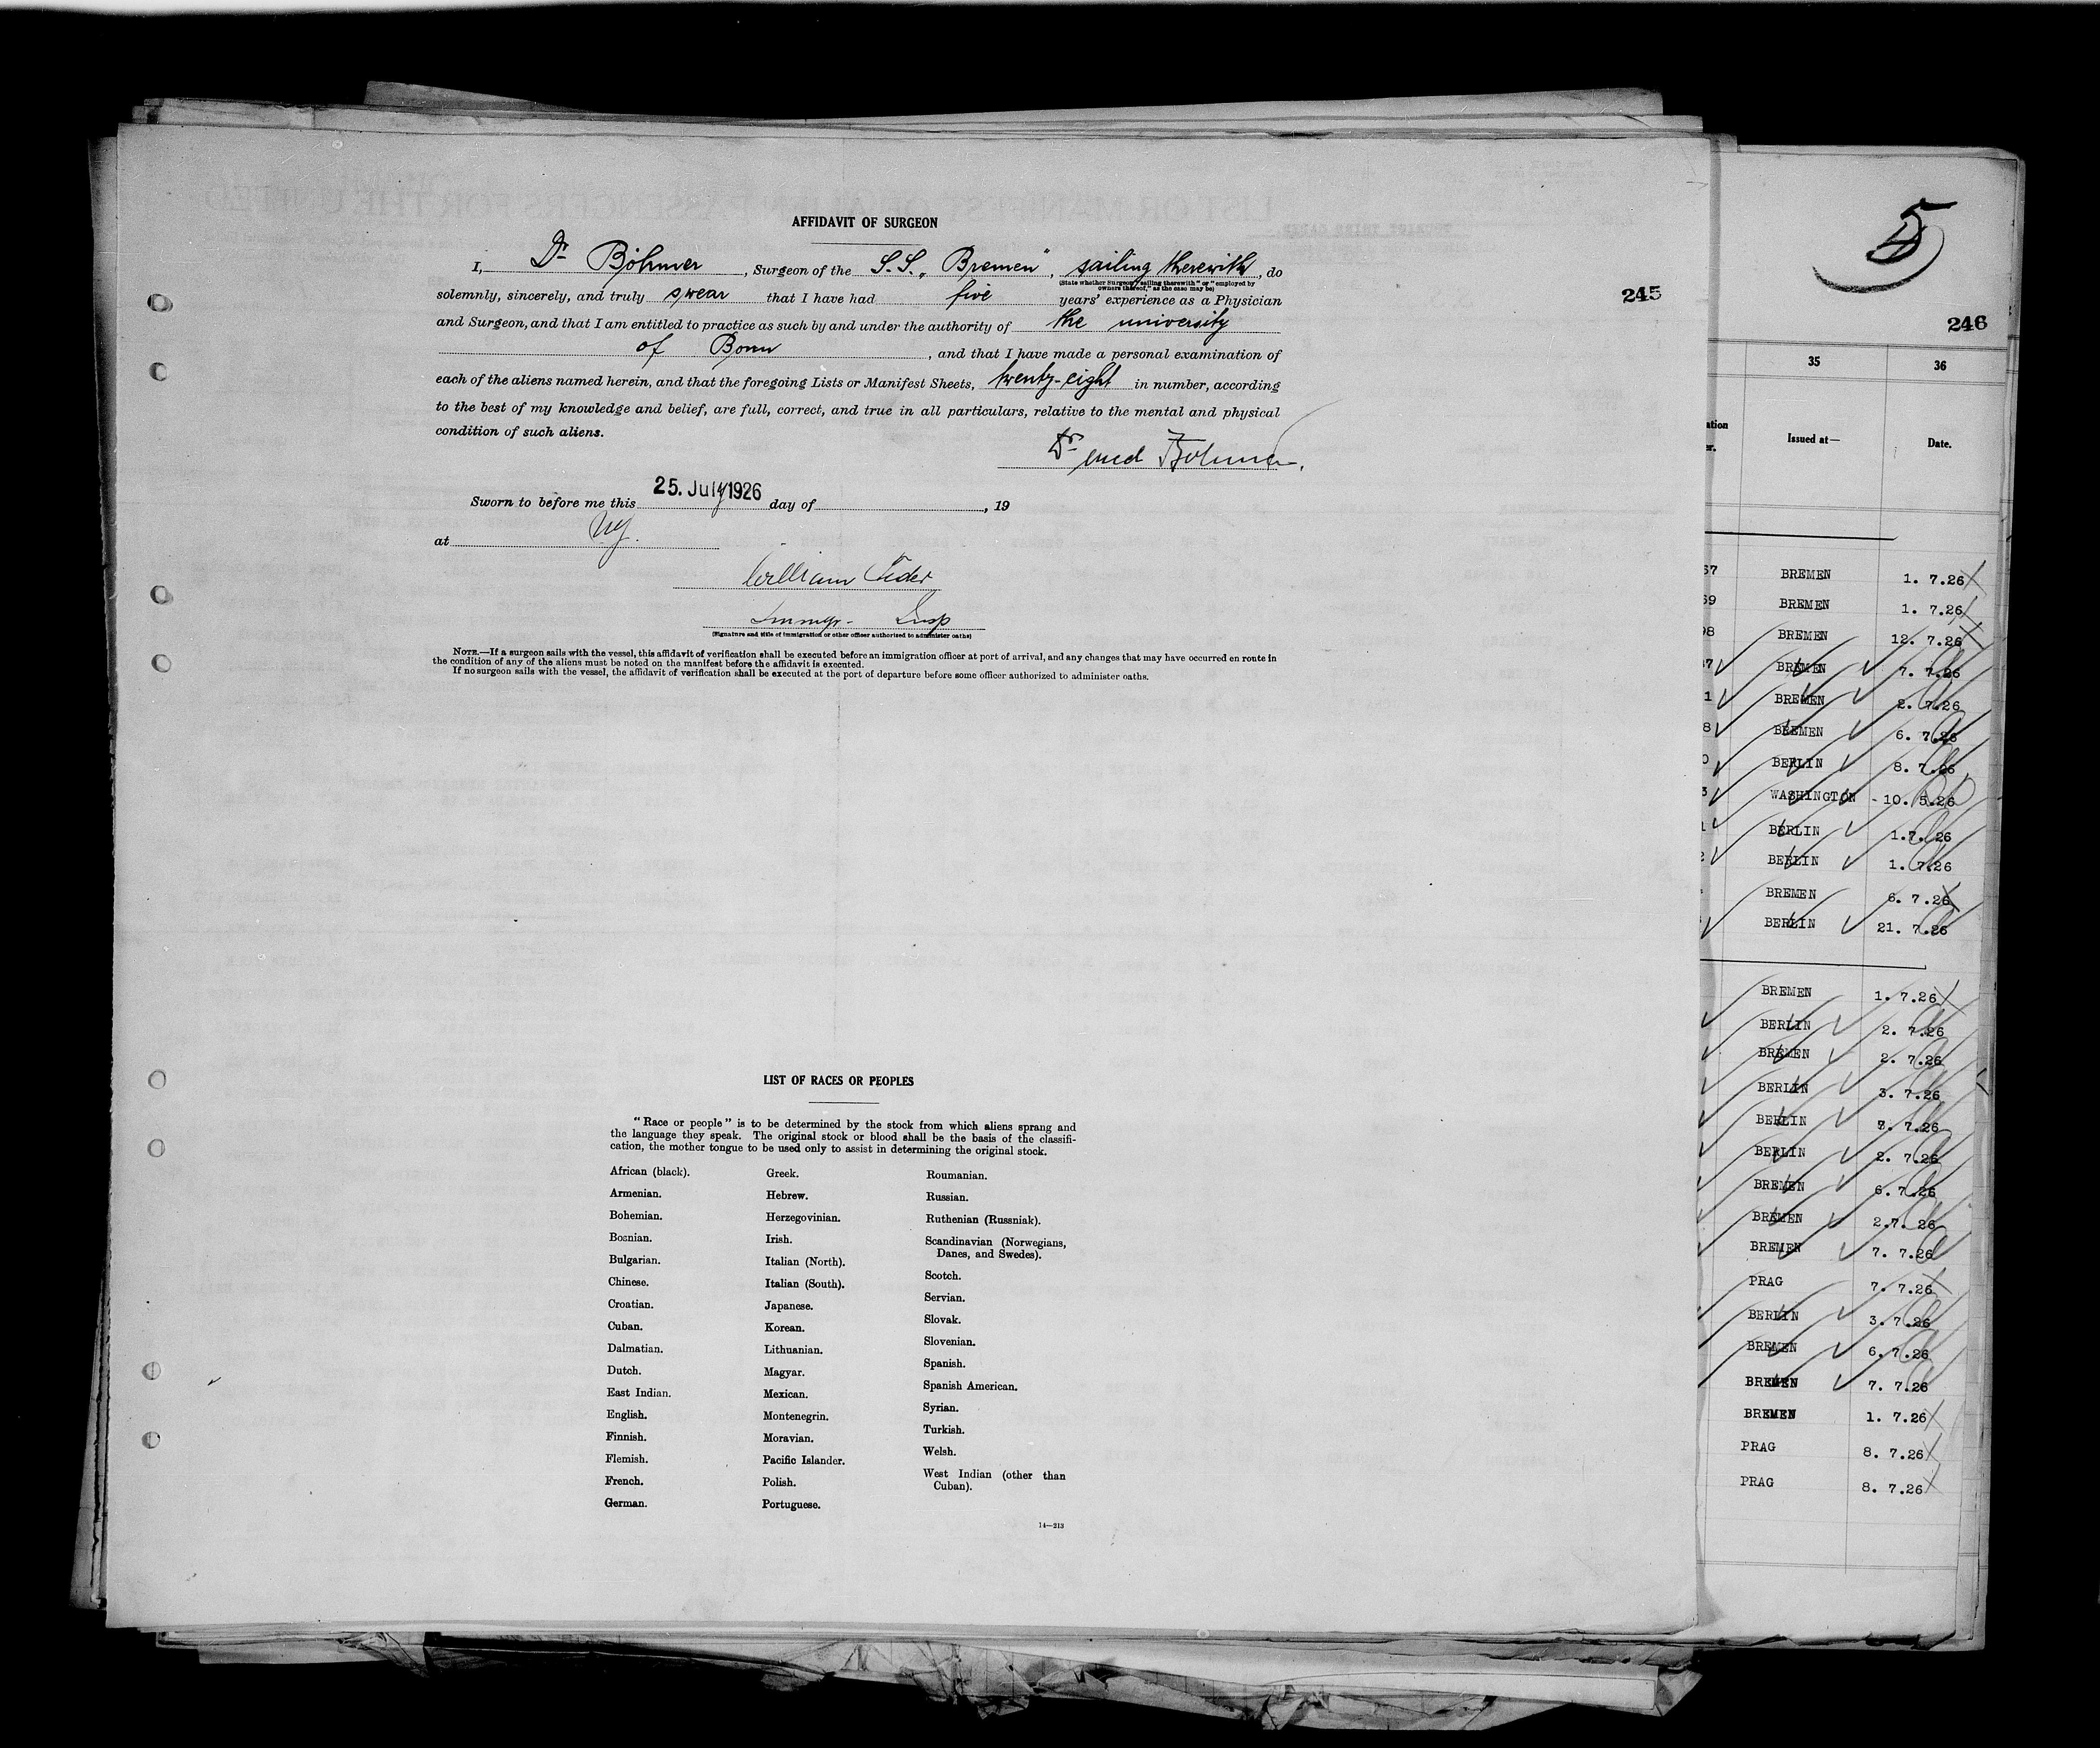 AFFIDAVIT OF SURGEON
I, Dr Böhmer, Surgeon of the S.S. „Bremen", sailing therewith, do
(State whether Surgeon "sailing therewith" or "employed by
owners thereof," as the case may be)
solemnly, sincerely, and truly swear that I have had five years' experience as a Physician
and Surgeon, and that I am entitled to practice as such by and under the authority of the university
of Bonn, and that I have made a personal examination of
each of the aliens named herein, and that the foregoing Lists or Manifest Sheets, twenty-eight in number, according
to the best of my knowledge and belief, are full, correct, and true in all particulars, relative to the mental and physical
condition of such aliens.
Dr med Böhmer.
Sworn to before me this 25. July 1926 day of , 19
at NY.
William
Immgr. Insp
(Signature and title of immigration or other officer authorized to administer oaths)
NOTE.—If a surgeon sails with the vessel, this affidavit of verification shall be executed before an immigration officer at port of arrival, and any changes that may have occurred en route in
the condition of any of the aliens must be noted on the manifest before the affidavit is executed.
If no surgeon sails with the vessel, the affidavit of verification shall be executed at the port of departure before some officer authorized to administer oaths.
LIST OF RACES OR PEOPLES
"Race or people" is to be determined by the stock from which aliens sprang and
the language they speak. The original stock or blood shall be the basis of the classifi-
cation, the mother tongue to be used only to assist in determining the original stock.
African (black).
Armenian.
Bohemian.
Bosnian.
Bulgarian.
Chinese.
Croatian.
Cuban.
Dalmatian.
Dutch.
East Indian.
English.
Finnish.
Flemish.
French.
German.
Greek.
Hebrew.
Herzegovinian.
Irish.
Italian (North).
Italian (South).
Japanese.
Korean.
Lithuanian.
Magyar.
Mexican.
Montenegrin.
Moravian.
Pacific Islander.
Polish.
Portuguese.
Roumanian.
Russian.
Ruthenian (Russniak).
Scandinavian (Norwegians,
Danes, and Swedes).
Scotch.
Servian.
Slovak.
Slovenian.
Spanish.
Spanish American.
Syrian.
Turkish.
Welsh.
West Indian (other than
Cuban).
14—213
245
5
246
35 36
Issued at— Date.
67 BREMEN 1. 7.26
69 BREMEN 1. 7.26
98 BREMEN 12. 7.26
37 BREMEN 7. 7.26
1 BREMEN 2. 7.26
8 BREMEN 6. 7.26
0 BERLIN 8. 7.26
3 WASHINGTON - 10. 5.26
1 BERLIN 1.7. 26
2 BERLIN 1. 7.26
BREMEN 6. 7.26
BERLIN 21. 7.26
BREMEN 1. 7.26
BERLIN 2. 7.26
BREMEN 2. 7.26
BERLIN 3. 7.26
BERLIN 7. 7.26
BERLIN 2. 7.26
BREMEN 6. 7.26
BREMEN 2.7. 26
BREMEN 7. 7.26
PRAG 7. 7.26
BERLIN 3. 7.26
BREMEN 6. 7.26
BREMEN 7. 7.26
BREMEN 1. 7.26
PRAG 8. 7.26
PRAG 8. 7.26